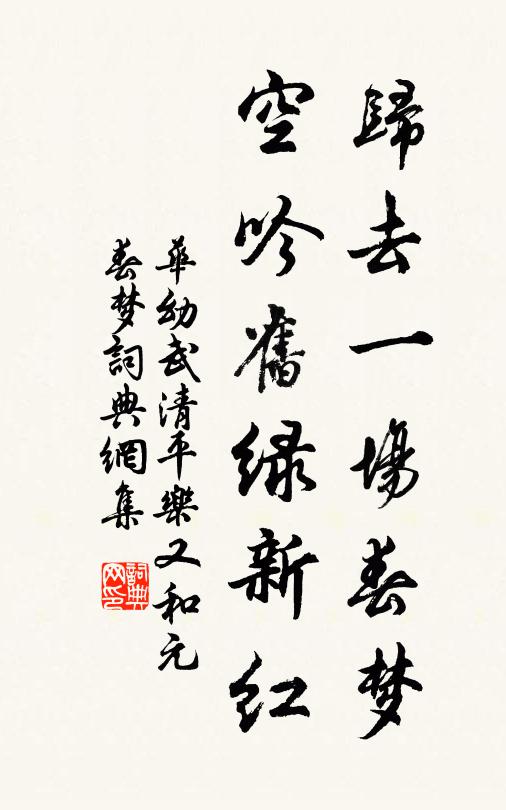 歸去一場春梦
空吟舊绿新红
華幼武清平樂又和元
春梦詞典網集
詞典
网印